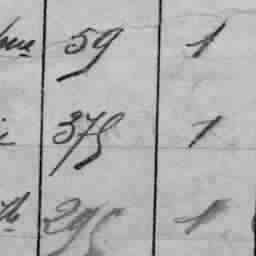 59 1
375 1
295 1